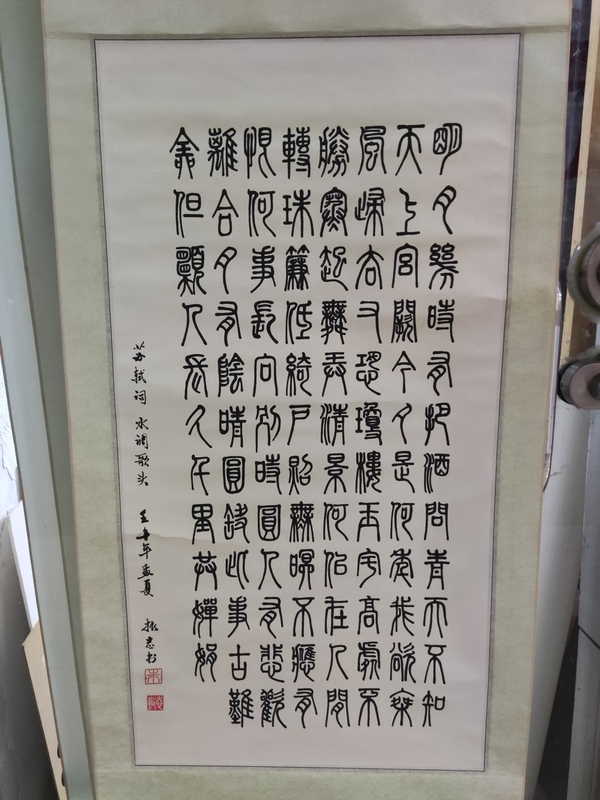 明月幾時有把酒問青天不知
天上宮闕今夕是何年我欲乘
風歸去又恐瓊樓玉宇高處不
勝寒起舞弄清景何似在人間
轉珠簾低綺戶照無眠不應有
恨何事長向別時圓人有悲歡
離合月有陰晴圓缺此事古難
全但願人長久千里共嬋娟
苏轼词 水调歌头 壬午年孟夏 振惠书